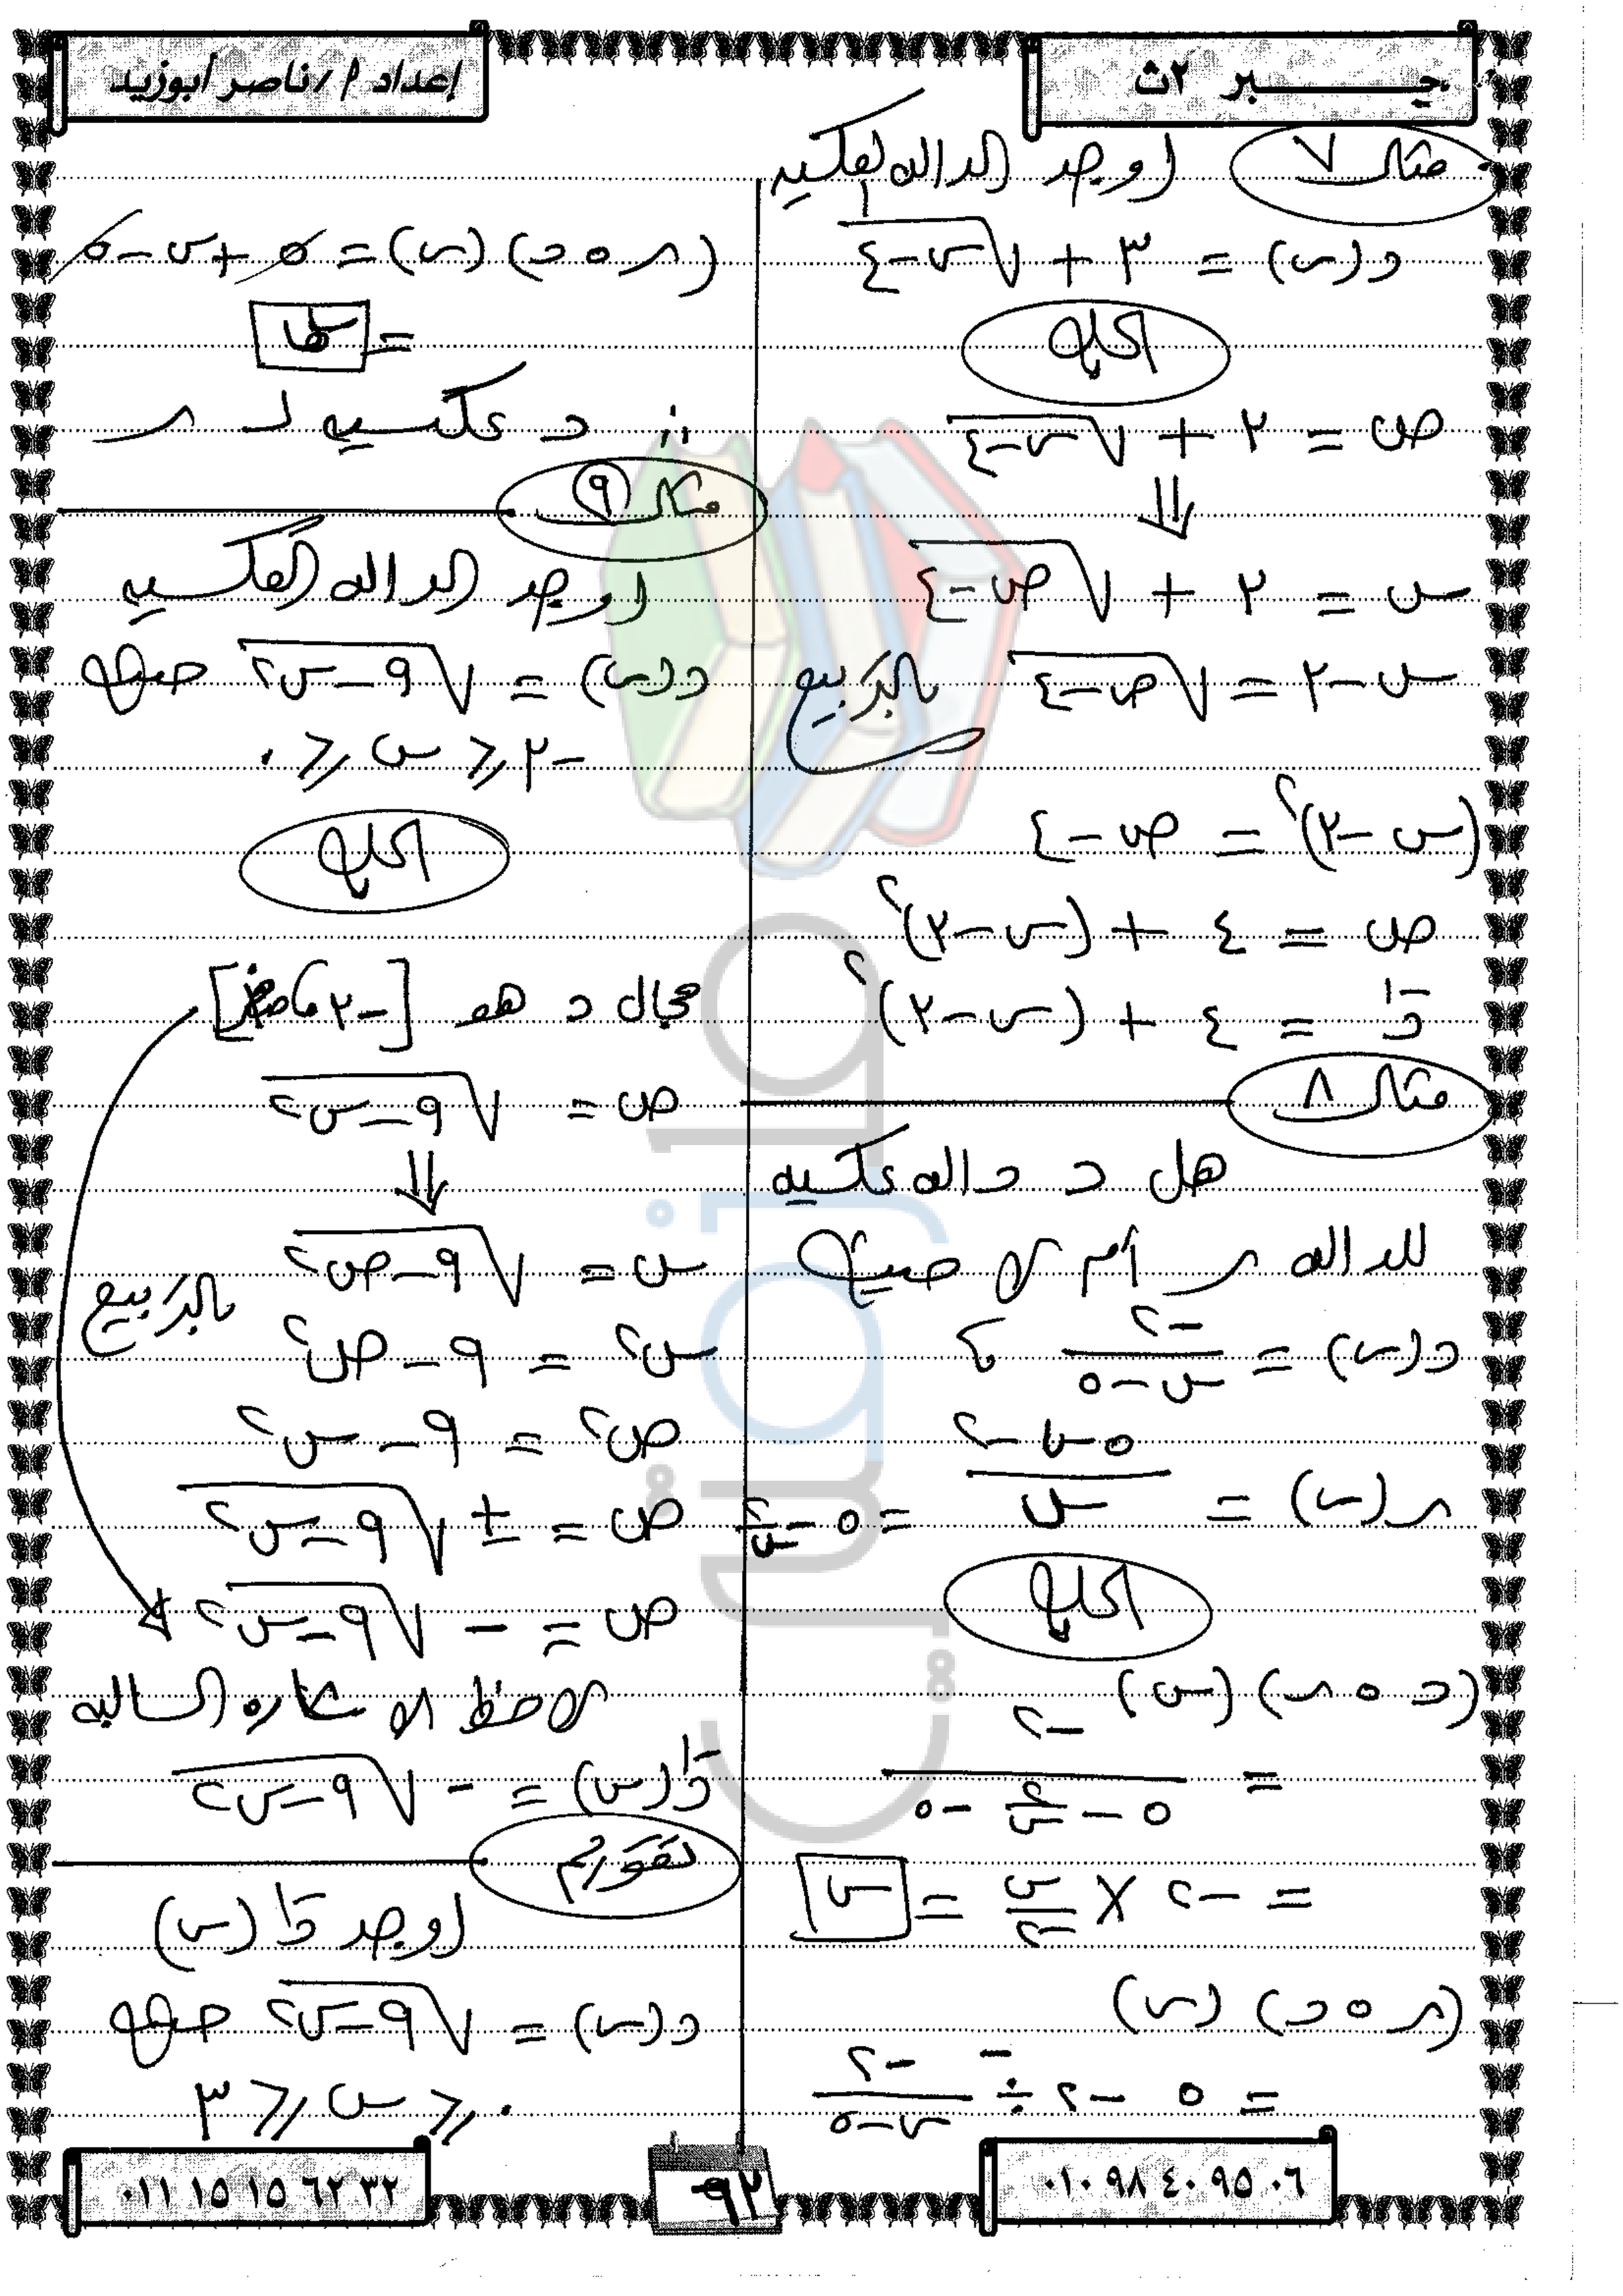 جـــــبر ٢ث
إعداد أ / ناصر أبوزيد
مثال ٧ اوجد الداله العكسيه
د(س) = ٣ + √(س-٤)
الحل
ص = ٣ + √(س-٤)
⇓
س = ٣ + √(ص-٤)
س-٣ = √(ص-٤) بالتربيع
(س-٣)² = ص-٤
ص = ٤ + (س-٣)²
د⁻¹ = ٤ + (س-٣)²
مثال ٨
هل د داله عكسيه
للداله ر أم لا حيث
د(س) = -٢/(س-٥) ،
ر(س) = (٥س-٢)/س = ٥-٢/س
الحل
(د ∘ ر)(س)
= -٢/(٥-٢/س-٥)
= -٢ × س/-٢ = س
(ر ∘ د)(س)
= ٥ -٢ ÷ -٢/(س-٥)
(ر ∘ د)(س) = ٥+س-٥
= س
∴ د عكسيه لـ ر
مثال ٩
اوجد الداله العكسيه
د(س) = √(٩-س²) حيث
-٣ ≤ س ≤ ٠
الحل
مجال د هو [-٣،صفر]
ص = √(٩-س²)
⇓
س = √(٩-ص²) بالتربيع
س² = ٩-ص²
ص² = ٩-س²
ص = ± √(٩-س²)
ص = - √(٩-س²)
لاحظ الاشاره السالبه
د⁻¹(س) = - √(٩-س²)
تقويم
اوجد د⁻¹(س)
د(س) = √(٩-س²) حيث
٠ ≤ س ≤ ٣
٠١٠ ٩٨ ٤٠ ٩٥ ٠٦
٩٣
٠١١ ١٥ ١٥ ٦٢ ٣٢